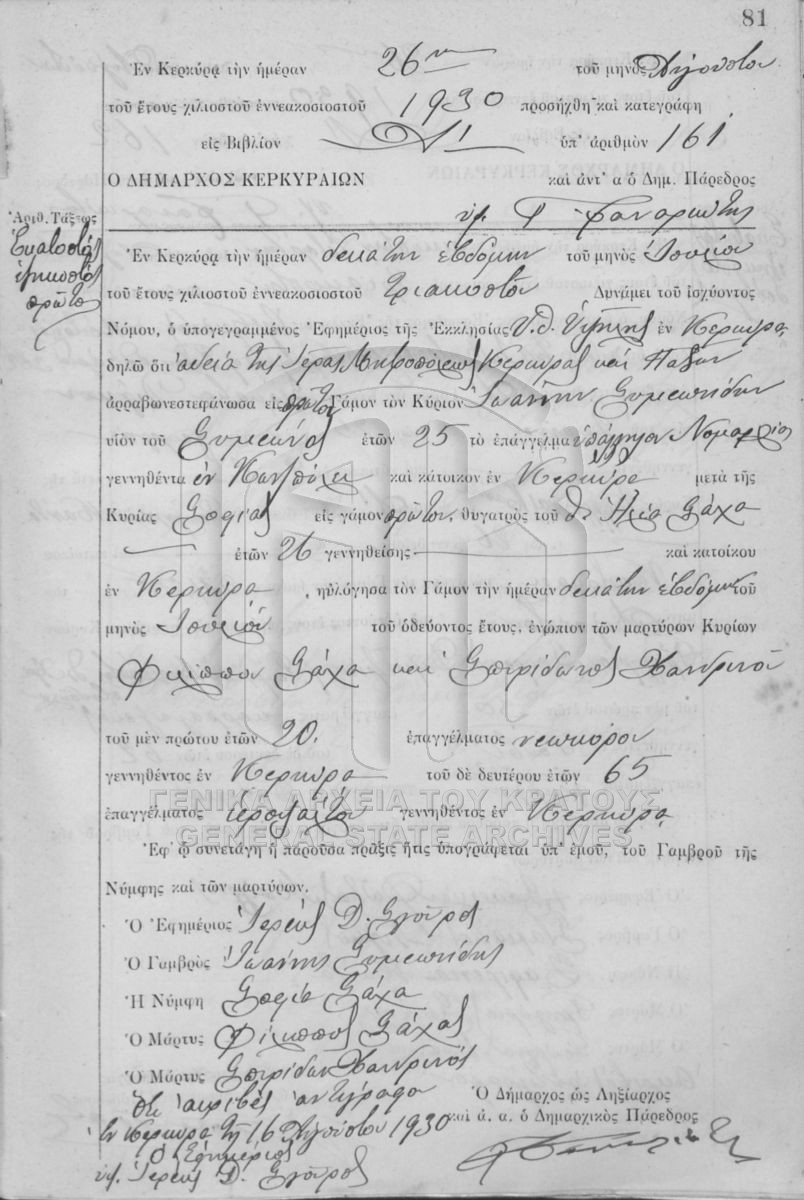 81
Ἐν Κερκύρᾳ τὴν ἡμέραν 26ην τοῦ μηνὸς Αὐγούστου
τοῦ ἔτους χιλιοστοῦ ἐννεακοσιοστοῦ 1930 προσήχθη καὶ κατεγράφη
εἰς Βιβλίον ὑπ' ἀριθμὸν 161
Ο ΔΗΜΑΡΧΟΣ ΚΕΡΚΥΡΑΙΩΝ καὶ ἀντ' α ὁ Δημ. Πάρεδρος
Ἀριθ. Τάξεως
Ἑκατοστὸς
ἑξηκοστὸς
πρῶτος
Ἐν Κερκύρᾳ τὴν ἡμέραν δεκάτην ἑβδόμην τοῦ μηνὸς Ἰουλίου
τοῦ ἔτους χιλιοστοῦ ἐννεακοσιοστοῦ τριακοστοῦ Δυνάμει τοῦ ἰσχύοντος
Νόμου, ὁ ὑπογεγραμμένος Ἐφημέριος τῆς Ἐκκλησίας ἐν Κερκύρᾳ
δηλῶ ὅτι ἀδείᾳ τῆς Ἱερᾶς Μητροπόλεως Κερκύρας καὶ Παξῶν
ἀρραβωνεστεφάνωσα εἰς πρῶτον Γάμον τὸν Κύριον Ἰωάννην Συμεωνίδην
υἱὸν τοῦ Συμεῶνος ἐτῶν 25 τὸ ἐπάγγελμα ὑπάλληλον Νομαρχίας
γεννηθέντα ἐν Κων/πόλει καὶ κάτοικον ἐν Κερκύρᾳ μετὰ τῆς
Κυρίας Σοφίας εἰς γάμον πρῶτον, θυγατρὸς τοῦ Ἠλία Σάχα
ἐτῶν 26 γεννηθείσης καὶ κατοίκου
ἐν Κερκύρᾳ, ηὐλόγησα τὸν Γάμον τὴν ἡμέραν δεκάτην ἑβδόμην τοῦ
μηνὸς Ἰουλίου τοῦ ὁδεύοντος ἔτους, ἐνώπιον τῶν μαρτύρων Κυρίων
Φιλίππου Σάχα καὶ Σπυρίδωνος Χανδρινοῦ
τοῦ μὲν πρώτου ἐτῶν 20. ἐπαγγέλματος νεωκόρου
γεννηθέντος ἐν Κερκύρᾳ τοῦ δὲ δευτέρου ἐτῶν 65
ἐπαγγέλματος ἱεροψάλτου γεννηθέντος ἐν Κερκύρᾳ
ΓΕΝΙΚΑ ΑΡΧΕΙΑ ΤΟΥ ΚΡΑΤΟΥΣ
GENERAL STATE ARCHIVES
Ἐφ' ᾧ συνετάγη ἡ παροῦσα πρᾶξις ἥτις ὑπογράφεται ὑπ' ἐμοῦ, τοῦ Γαμβροῦ τῆς
Νύμφης καὶ τῶν μαρτύρων.
Ὁ Ἐφημέριος Ἱερεὺς Δ.
Ὁ Γαμβρὸς Ἰωάννης Συμεωνίδης
Ἡ Νύμφη Σοφία Σάχα
Ὁ Μάρτυς Φίλιππος Σάχας
Ὁ Μάρτυς Σπυρίδων Χανδρινός
Ὅτι ἀκριβὲς ἀντίγραφο
Ἐν Κερκύρᾳ τῇ 16 Αὐγούστου 1930
Ὁ Ἐφημέριος
ὑπ. Ἱερεὺς Δ.
Ὁ Δήμαρχος ὡς Ληξίαρχος
καὶ ἀ. α. ὁ Δημαρχικὸς Πάρεδρος